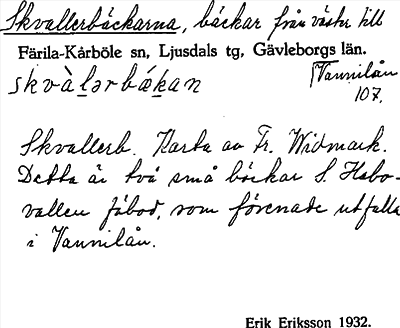 Skvallerbäckarna, bäckar från väster till
Färila-Kårböle sn, Ljusdals tg, Gävleborgs län.
skvàlərbækan
Vannilån
107.
Skvallerb. Karta av Fr. Widmark.
Detta är två små bäckar S. Habo-
vallen fäbod, som förenade utfalla
i Vannilån.
Erik Eriksson 1932.